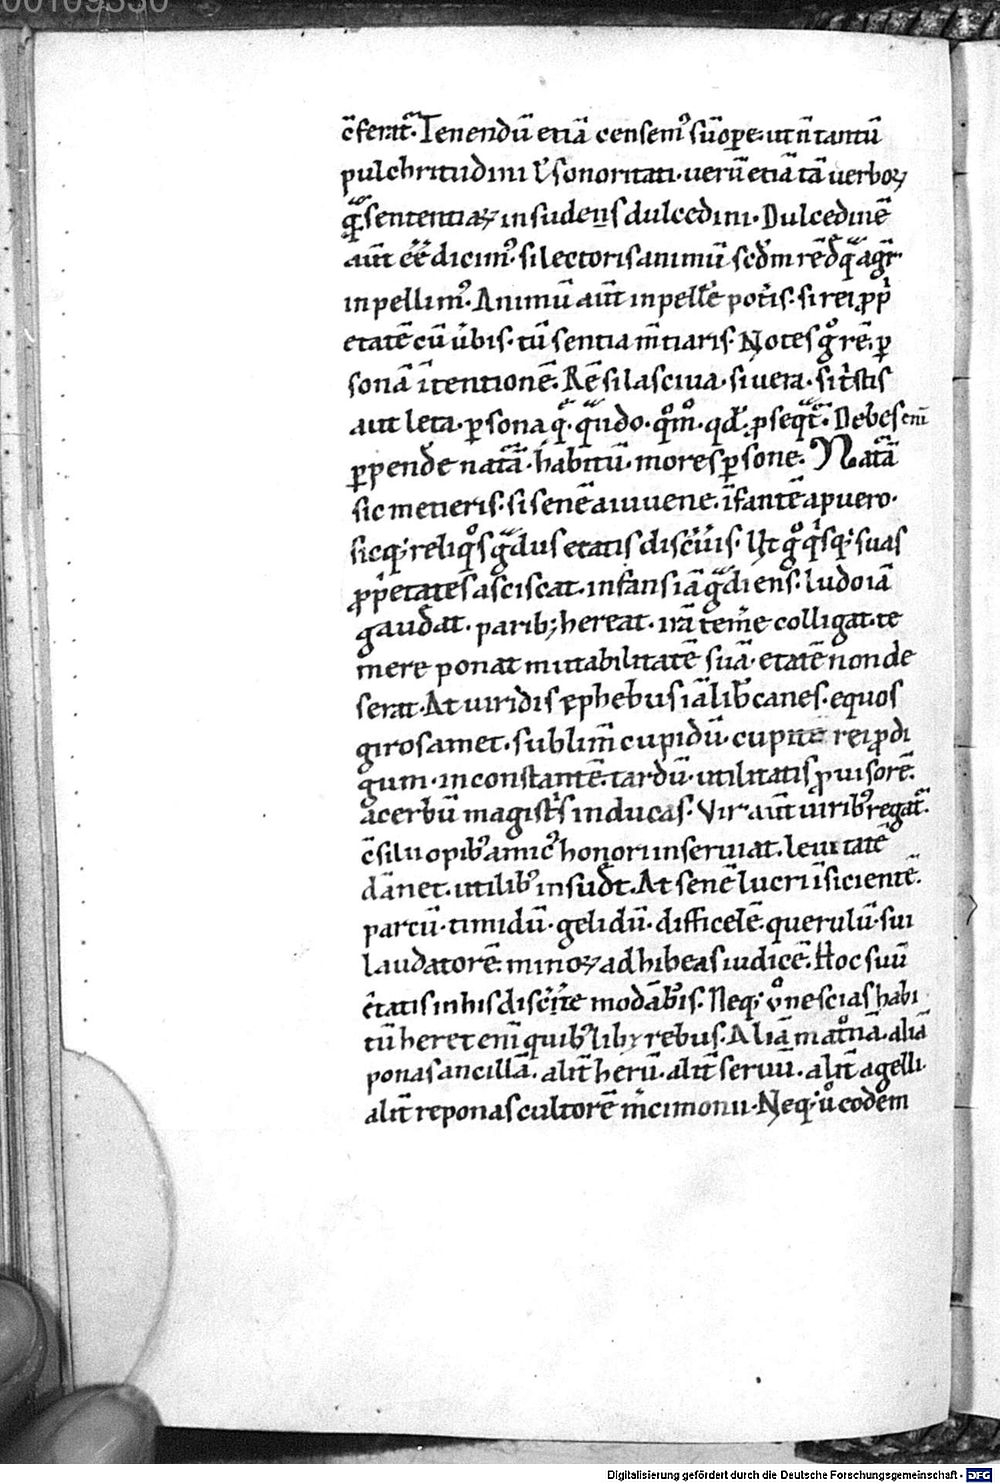 c̄ferat᷑. Tenendū etiā censem᷒ sūope. ut n̄ tantū
pulchritudini ł sonoritati. uerū etiā tā uerboꝝ
q̄ sententiaꝝ insudens dulcedini. Dulcedinē
aūt ēē dicim᷒. si lectoris animū scd̄m rē
inpellim᷒. Animū aūt inpellē potis. si rei ꝓp
etatē cū ubis. tū sentia m̄tiaris. Notes g̊ rē. ꝑ
sonā ītentionē. Rē si lasciua. si uera. si tstis
aut leta. ꝑsona q̄. qndo. qm̊. qd. ꝓseqt᷑. Debes eni
ꝑpende natā. habitū. mores ꝑsone. Natā
sic metieris. si senē a iuuene. īfantē a puero.
sicq; reliqs gdus etatis discnis. Ut g̊ qsq; suas
ꝓpetates asciscat. infans iā gdiens. ludo iā
gaudat. parib; hereat. irā temē colligat. te
mere ponat mutabilitatē suā. etatē non de
serat. At uiridis ephebus iā lib canes. equos
giros amet. sublimē cupidū. cupitē rei ꝓdi
gum. inconstantē. tardū. utilitatis ꝓuisorē.
acerbū magistis inducas. Vir aūt uirib᷒ regat᷑.
c̄silii opib᷒ amic᷒ honori inseruiat. leuitatē
dānet. utilib᷒ insudt. At senē lucri īsicientē.
partū. timidū. gelidū. difficelē. querulū. sui
laudatorē. minoꝝ adhibeas iudicē. Hoc suū
etatis in his discite modabis. Neq; ů nescias habi
tū heret eni quib᷒libꝫ rebus. Aliā matnā. aliā
ponas ancillā. alit̄ herū. alit̄ seruū. alit̄ agelli.
alit̄ reponas cultorē mcimonii. Neq; ů eodem
Digitalisierung gefördert durch die Deutsche Forschungsgemeinschaft - DFG